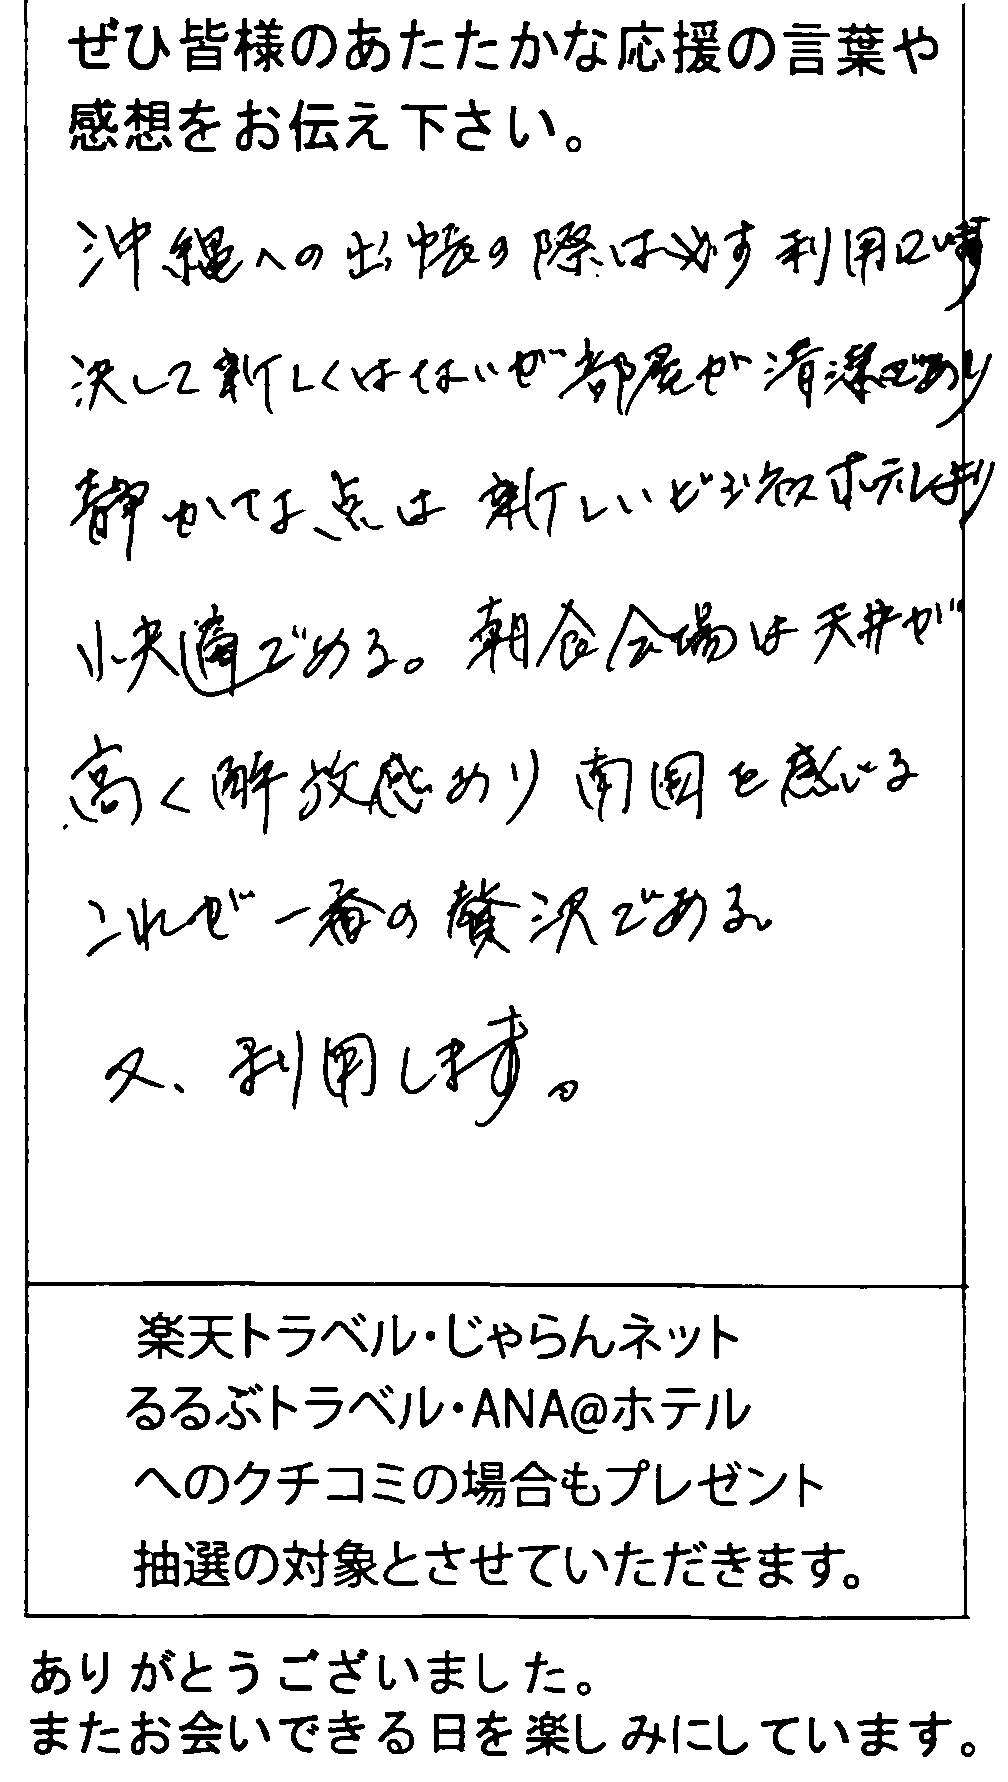 ぜひ皆様のあたたかな応援の言葉や
感想をお伝え下さい。
沖縄への出張の際は必ず利用
決して新しくはないが部屋が清潔であり
静かな点は新しいビジネスホテルより
快適である。朝食会場は天井が
高く解放感あり南国を感じる
これが一番の贅沢である。
又、利用します。
楽天トラベル・じゃらんネット
るるぶトラベル・ANA@ホテル
へのクチコミの場合もプレゼント
抽選の対象とさせていただきます。
ありがとうございました。
またお会いできる日を楽しみにしています。